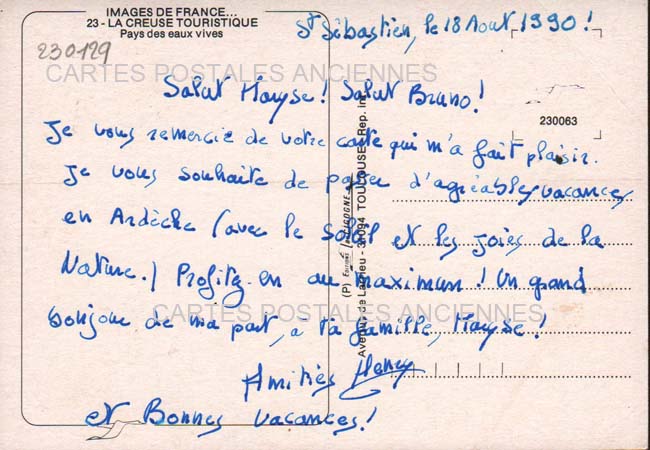 IMAGES DE FRANCE...
23 - LA CREUSE TOURISTIQUE
Pays des eaux vives
230129
St Sébastien, le 18 Aout 1990!
CARTES POSTALES ANCIENNES
230063
Salut Maryse! Salut Bruno!
Je vous remercie de votre carte qui m'a fait plaisir.
Je vous souhaite de passer d'agréables vacances
en Ardèche (avec le soleil et les joies de la
Nature.) Profitez-en au maximum! Un grand
bonjour de ma part, à ta famille, Maryse!
CARTES POSTALES ANCIENNES
Amitiés Henry
et Bonnes vacances!
(P) Editions
Avenue de Larrieu - 31094 TOULOUSE - Rep. Int.